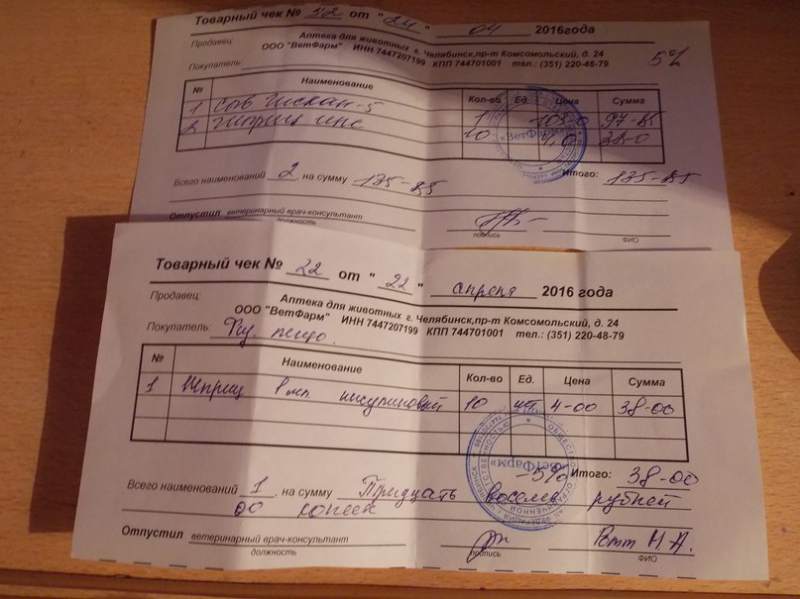 Товарный чек № 12 от "21" 04 2016года
Продавец: Аптека для животных г. Челябинск,пр-т Комсомольский, д. 24
ООО "ВетФарм" ИНН 7447207199 КПП 744701001 тел.: (351) 220-48-79
Покупатель 5%
№ Наименование Кол-во Ед. Цена Сумма
1 1 97-85
2 10 38-0
Всего наименований 2 на сумму 135-85 Итого: 135-85
Отпустил ветеринарный врач-консультант
должность подпись ФИО
Товарный чек № 22 от "21" апреля 2016 года
Продавец: Аптека для животных г. Челябинск,пр-т Комсомольский, д. 24
ООО "ВетФарм" ИНН 7447207199 КПП 744701001 тел.: (351) 220-48-79
Покупатель Физ. лицо.
№ Наименование Кол-во Ед. Цена Сумма
1 Шприц 1 мл инсулиновый 10 шт 4-00 38-00
-5% Итого: 38-00
Всего наименований 1 на сумму Тридцать восемь рублей
00 копеек
Отпустил ветеринарный врач-консультант
должность подпись ФИО